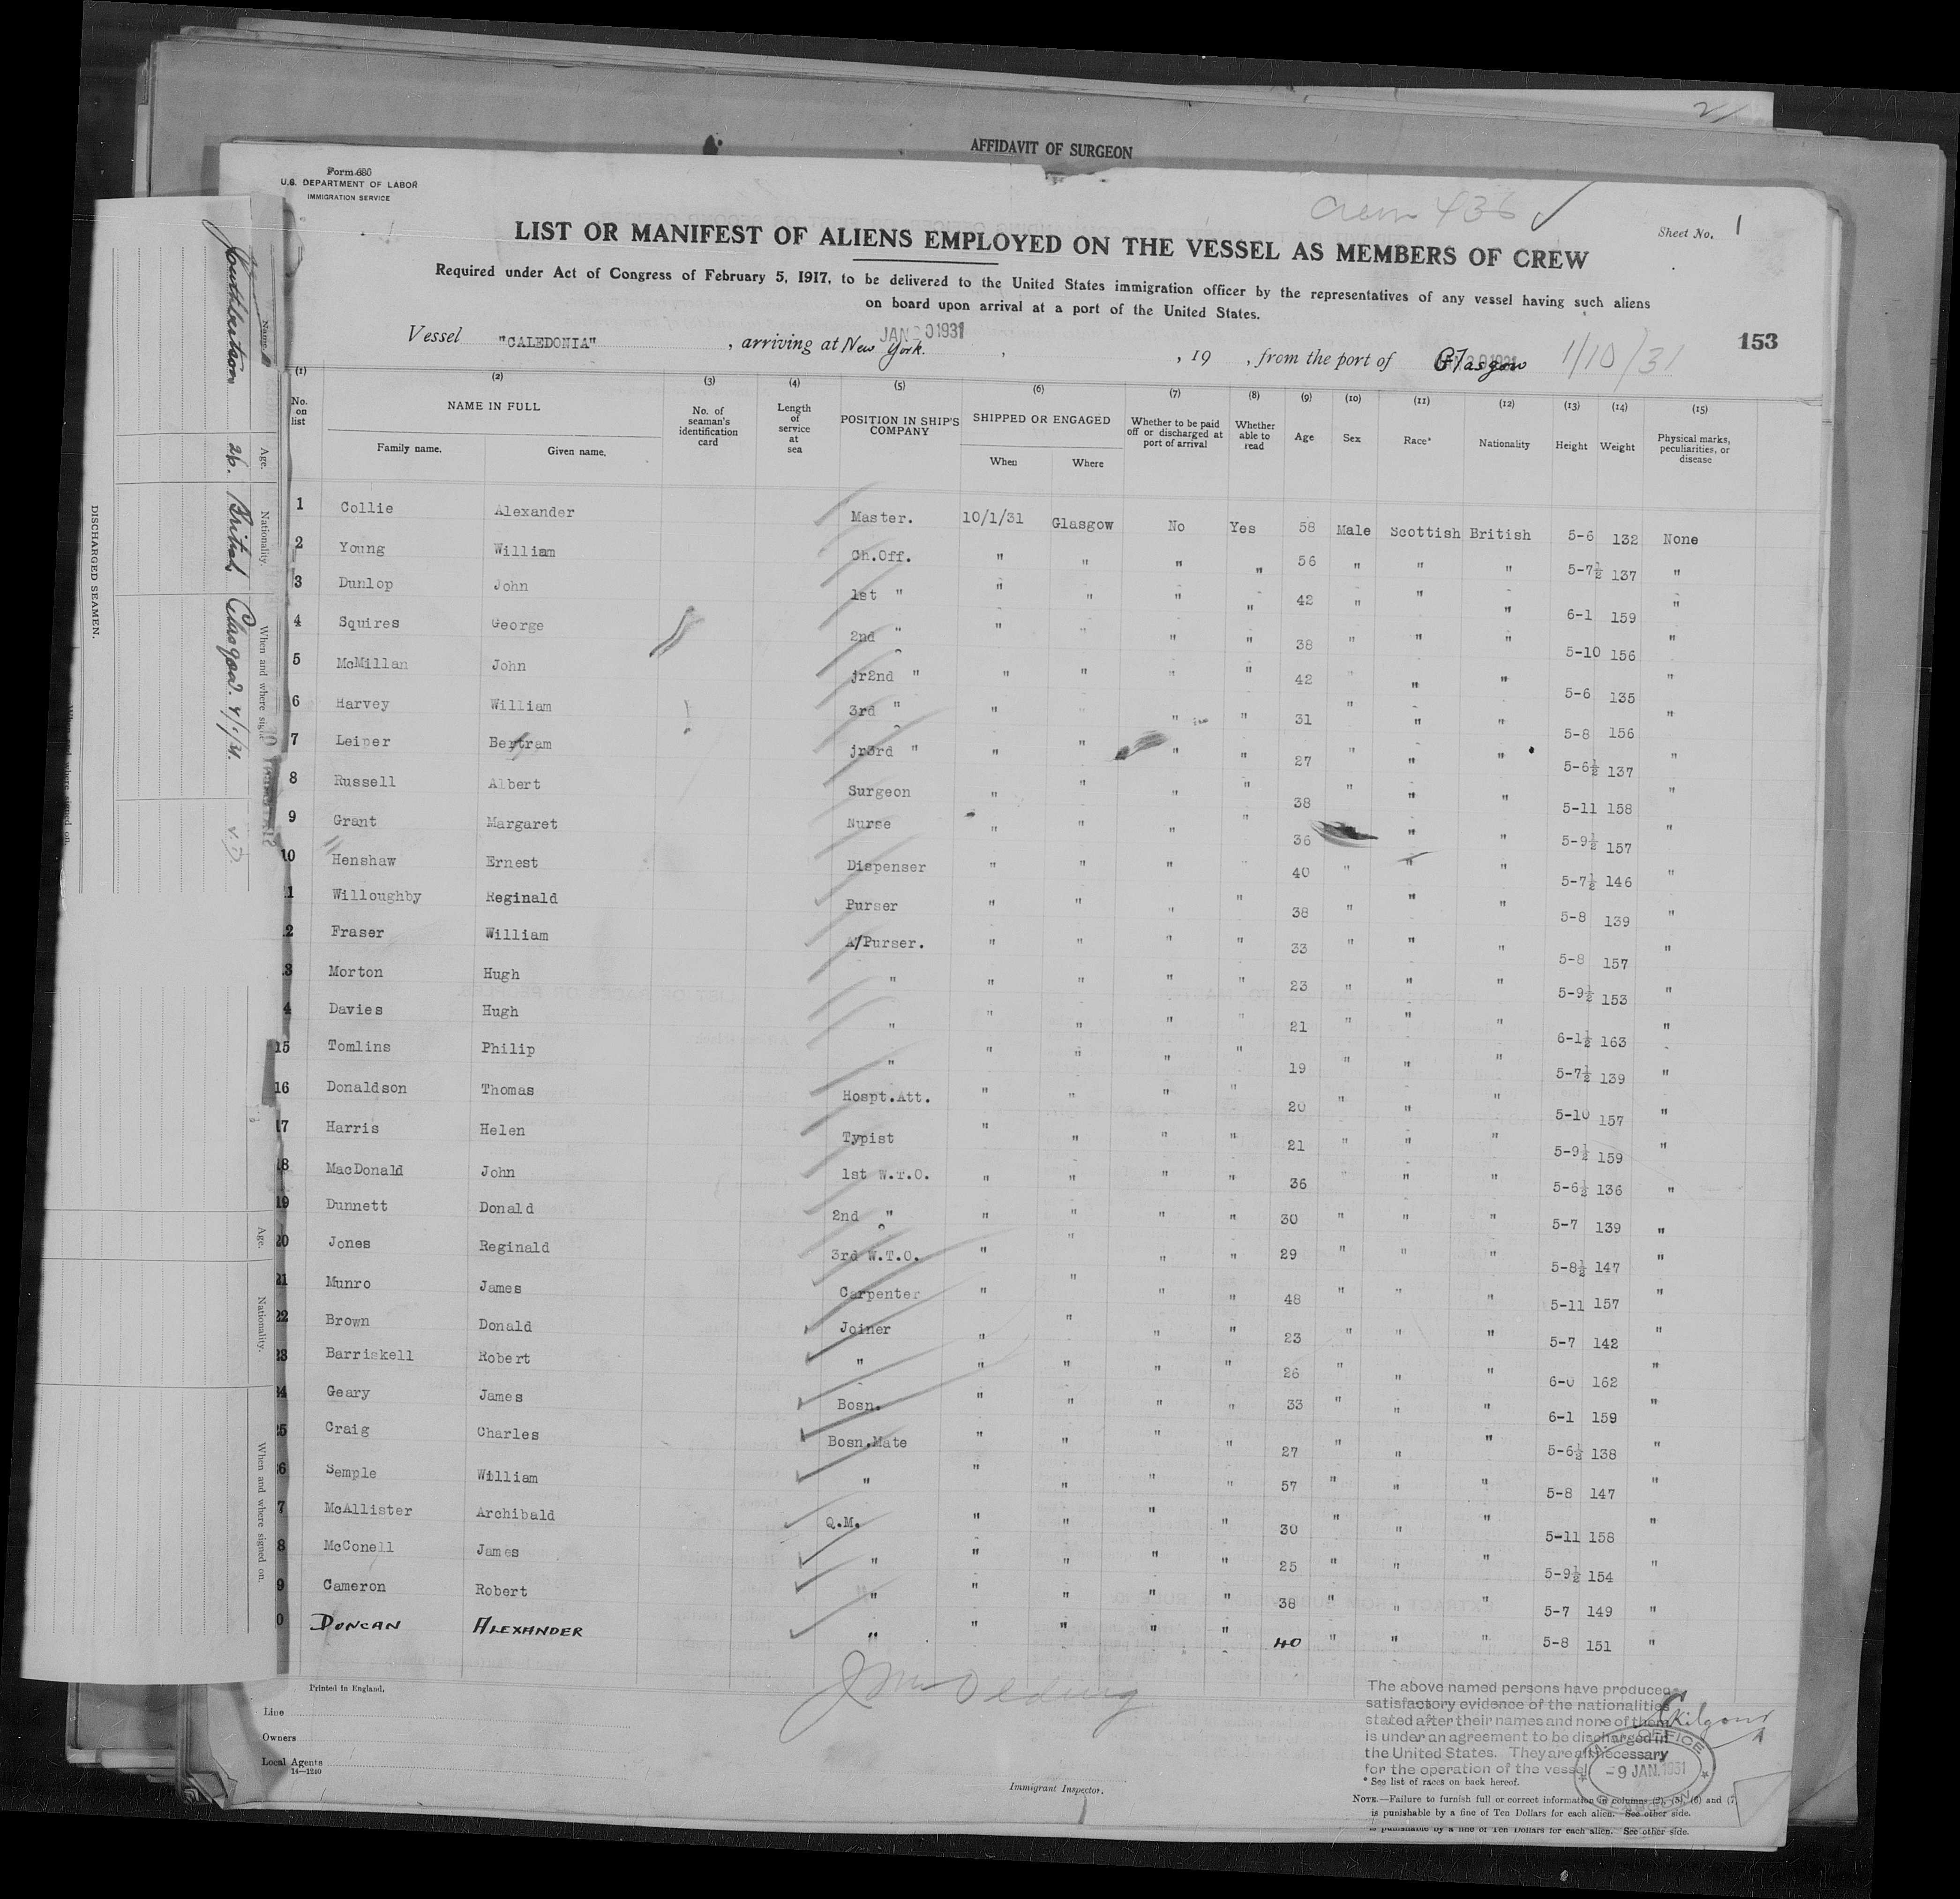 21
AFFIDAVIT OF SURGEON
Form 680
U.S. DEPARTMENT OF LABOR
IMMIGRATION SERVICE
Crew 436 ✓
Sheet No. 1
LIST OR MANIFEST OF ALIENS EMPLOYED ON THE VESSEL AS MEMBERS OF CREW
Required under Act of Congress of February 5, 1917, to be delivered to the United States immigration officer by the representatives of any vessel having such aliens
on board upon arrival at a port of the United States.
153
Vessel "CALEDONIA", arriving at New York. JAN 20 1931, 19 , from the port of Glasgow 1/10/31
(1) (2) (3) (4) (5) (6) (7) (8) (9) (10) (11) (12) (13) (14) (15)
No. on list NAME IN FULL Family name. Given name. No. of seaman's identification card Length of service at sea POSITION IN SHIP'S COMPANY SHIPPED OR ENGAGED When Where Whether to be paid off or discharged at port of arrival Whether able to read Age Sex Race* Nationality Height Weight Physical marks, peculiarities, or disease
1 Collie Alexander Master. 10/1/31 Glasgow No Yes 58 Male Scottish British 5-6 132 None
2 Young William Ch.Off. " " " " 56 " " " 5-7½ 137 "
3 Dunlop John 1st " " " " " 42 " " " 6-1 159 "
4 Squires George 2nd " " " " " 38 " " " 5-10 156 "
5 McMillan John jr2nd " " " " " 42 " " " 5-6 135 "
6 Harvey William 3rd " " " " " 31 " " " 5-8 156 "
7 Leiper Bertram jr3rd " " " " " 27 " " " 5-6½ 137 "
8 Russell Albert Surgeon " " " " 38 " " " 5-11 158 "
9 Grant Margaret Nurse " " " " 36 " " 5-9½ 157 "
10 Henshaw Ernest Dispenser " " " 40 " " " 5-7½ 146 "
1 Willoughby Reginald Purser " " " " 38 " " " 5-8 139 "
2 Fraser William A/Purser. " " " " 33 " " " 5-8 157 "
3 Morton Hugh " " " " " 23 " " " 5-9½ 153 "
4 Davies Hugh " " " " " 21 " " " 6-1½ 163 "
15 Tomlins Philip " " " " " 19 " " " 5-7½ 139 "
16 Donaldson Thomas Hospt.Att. " " " " 20 " " " 5-10 157 "
17 Harris Helen Typist " " " " 21 " " " 5-9½ 159 "
18 MacDonald John 1st W.T.O. " " " " 36 " " " 5-6½ 136 "
19 Dunnett Donald 2nd " " " " " 30 " " " 5-7 139 "
20 Jones Reginald 3rd W.T.O. " " " " 29 " " " 5-8½ 147 "
21 Munro James Carpenter " " " " 48 " " " 5-11 157 "
22 Brown Donald Joiner " " " " 23 " " " 5-7 142 "
23 Barriskell Robert " " " " " 26 " " " 6-0 162 "
24 Geary James Bosn. " " " " 33 " " " 6-1 159 "
25 Craig Charles Bosn.Mate " " " " 27 " " " 5-6½ 138 "
6 Semple William " " " " " 57 " " " 5-8 147 "
7 McAllister Archibald Q.M. " " " " 30 " " " 5-11 158 "
8 McConell James " " " " " 25 " " " 5-9½ 154 "
9 Cameron Robert " " " " " 38 " " " 5-7 149 "
0 DUNCAN ALEXANDER " " " " " 40 " " " 5-8 151 "
Printed in England.
Line
Owners
Local Agents
14—1240
Immigrant Inspector.
The above named persons have produced
satisfactory evidence of the nationalities
stated after their names and none of them
is under an agreement to be discharged in
the United States. They are all necessary
for the operation of the vessel
OFFICE
-9 JAN. 1931
* See list of races on back hereof.
NOTE.—Failure to furnish full or correct information in columns (2), (5), (6) and (7
is punishable by a fine of Ten Dollars for each alien. See other side.
is punishable by a fine of Ten Dollars for each alien. See other side.
DISCHARGED SEAMEN.
Name. Age. Nationality. When and where signed on.
26. British Glasgow.
Age. Nationality. When and where signed on.